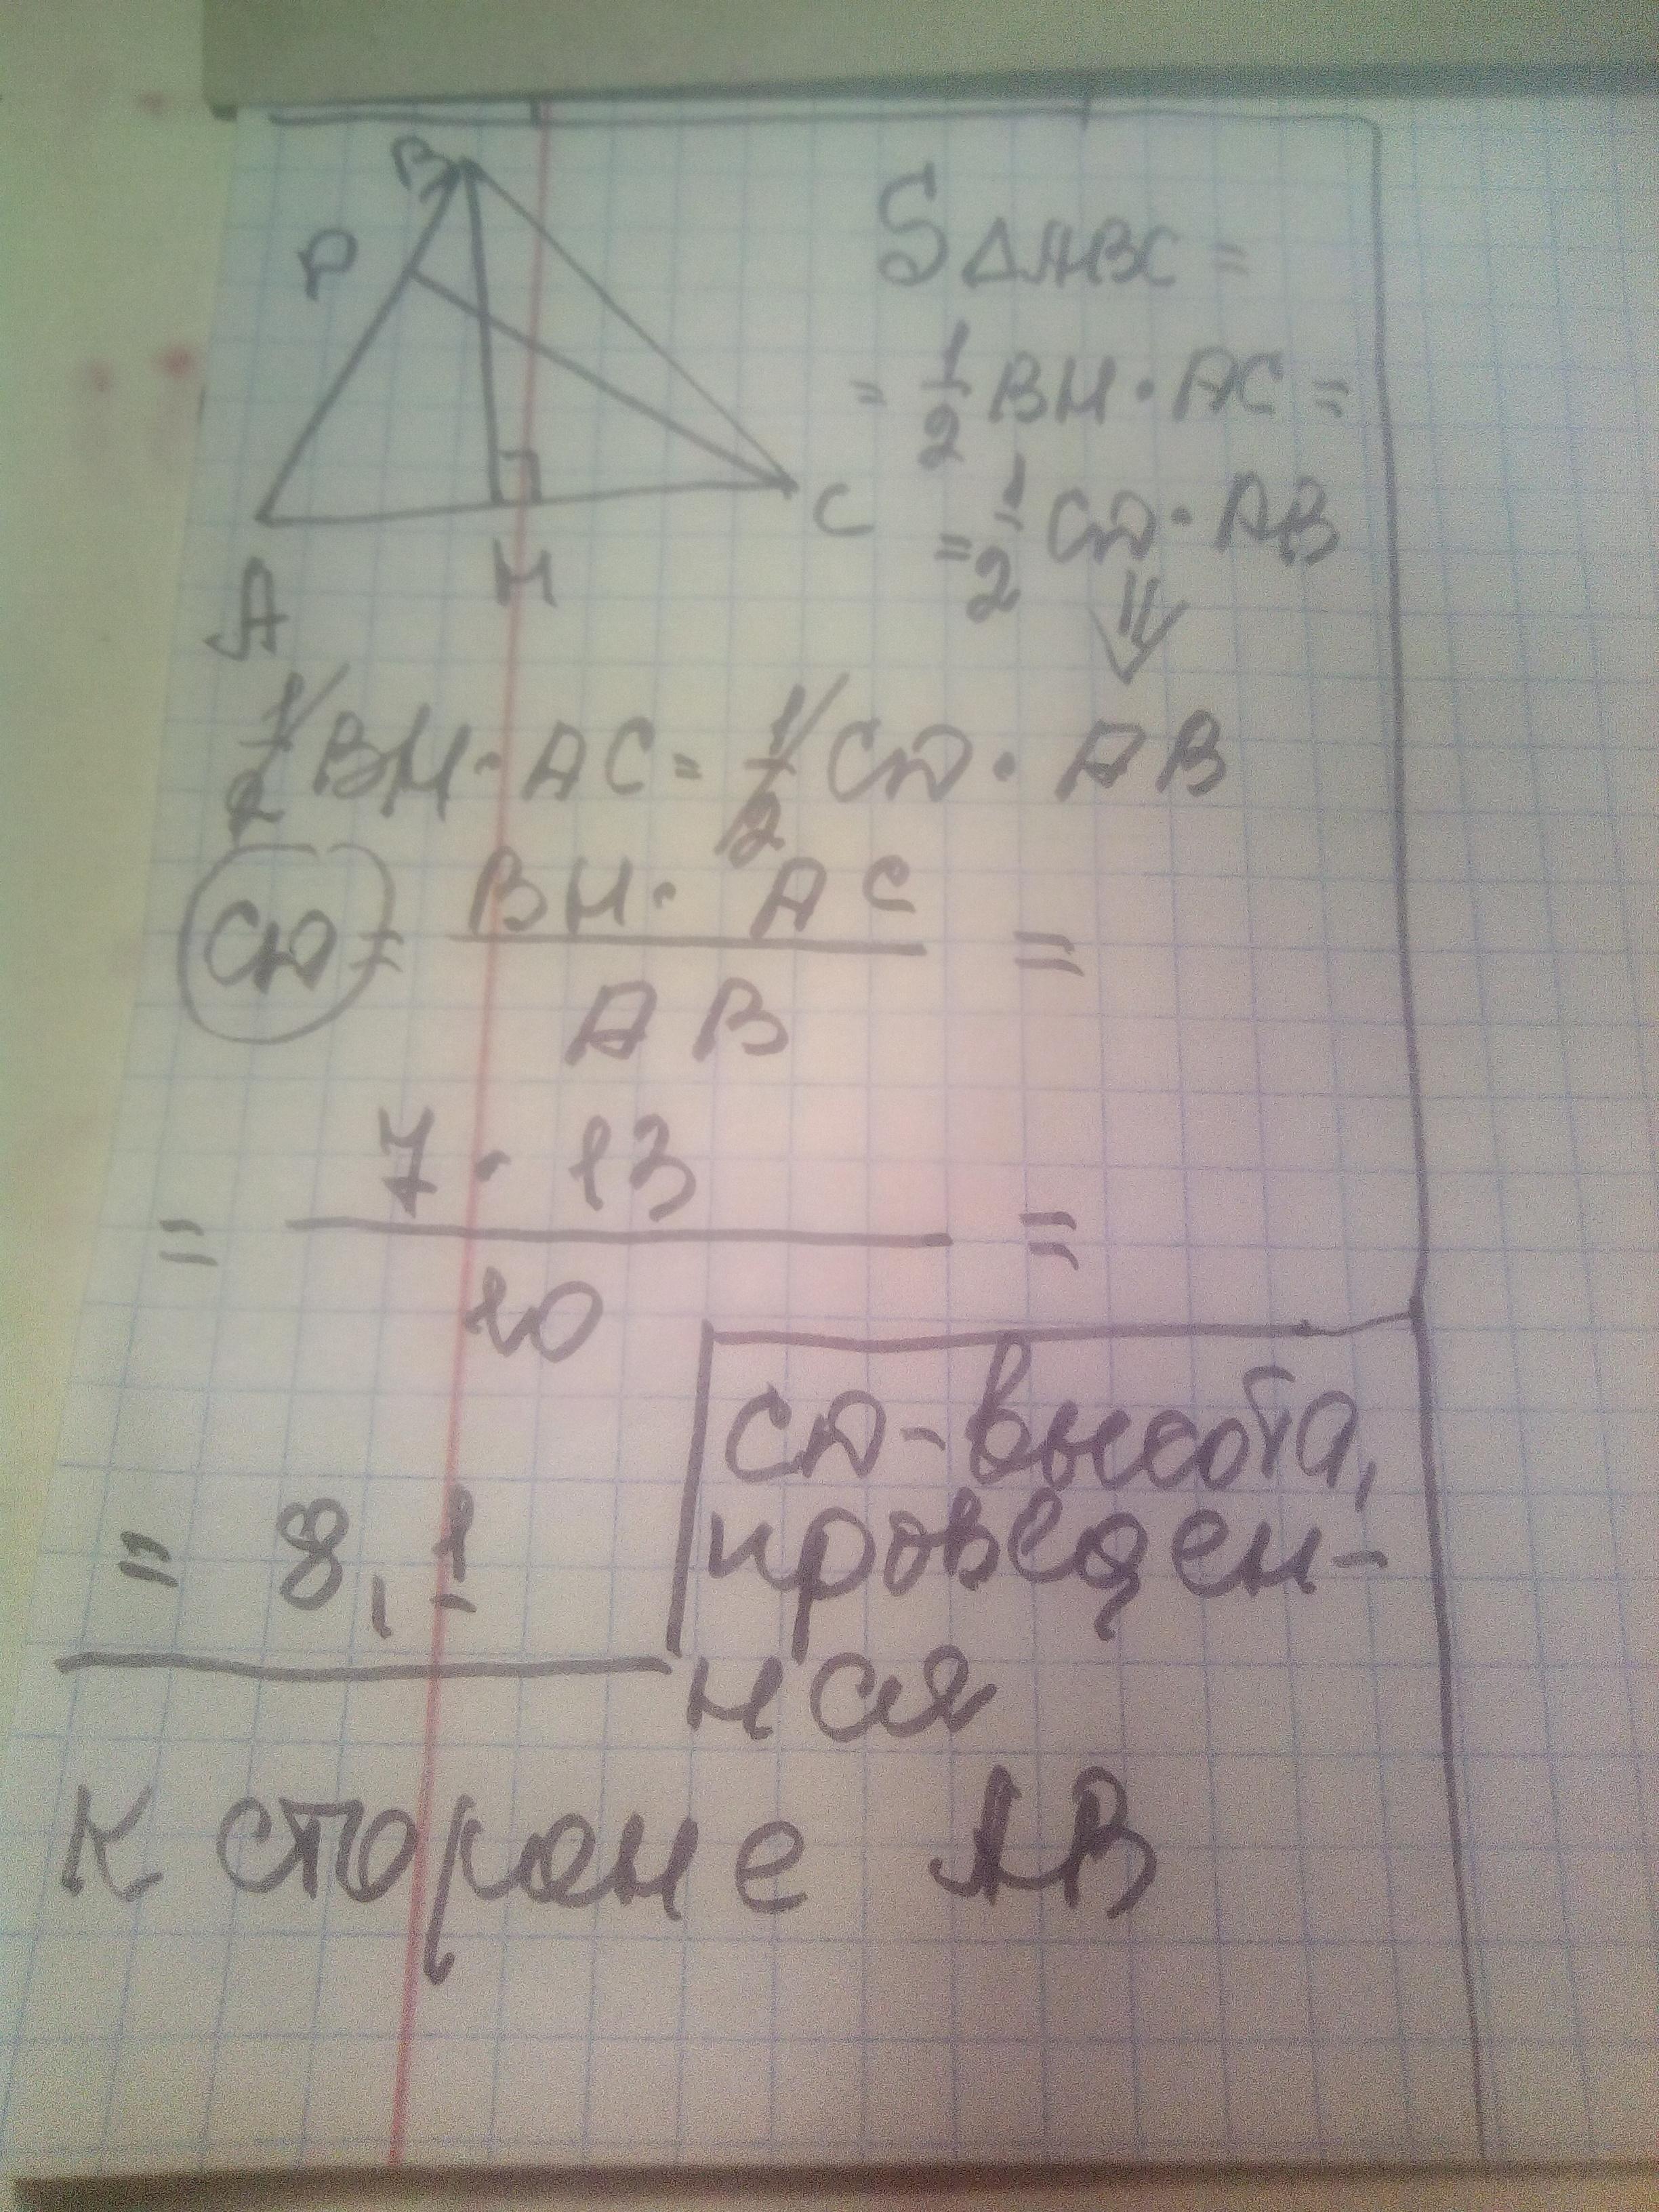 B
P
A
H
C
S △ABC =
= 1/2 BH · AC =
= 1/2 CD · AB
⇓
1/2 BH · AC = 1/2 CD · AB
CD = BH · AC / AB =
= 7 · 13 / 10 =
= 8,1
CD - высота,
проведен-
ная
к стороне AB